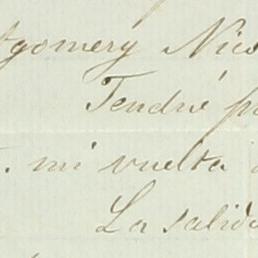 tgomery Nico
Tendré pa
. mi vuelta a
La salida